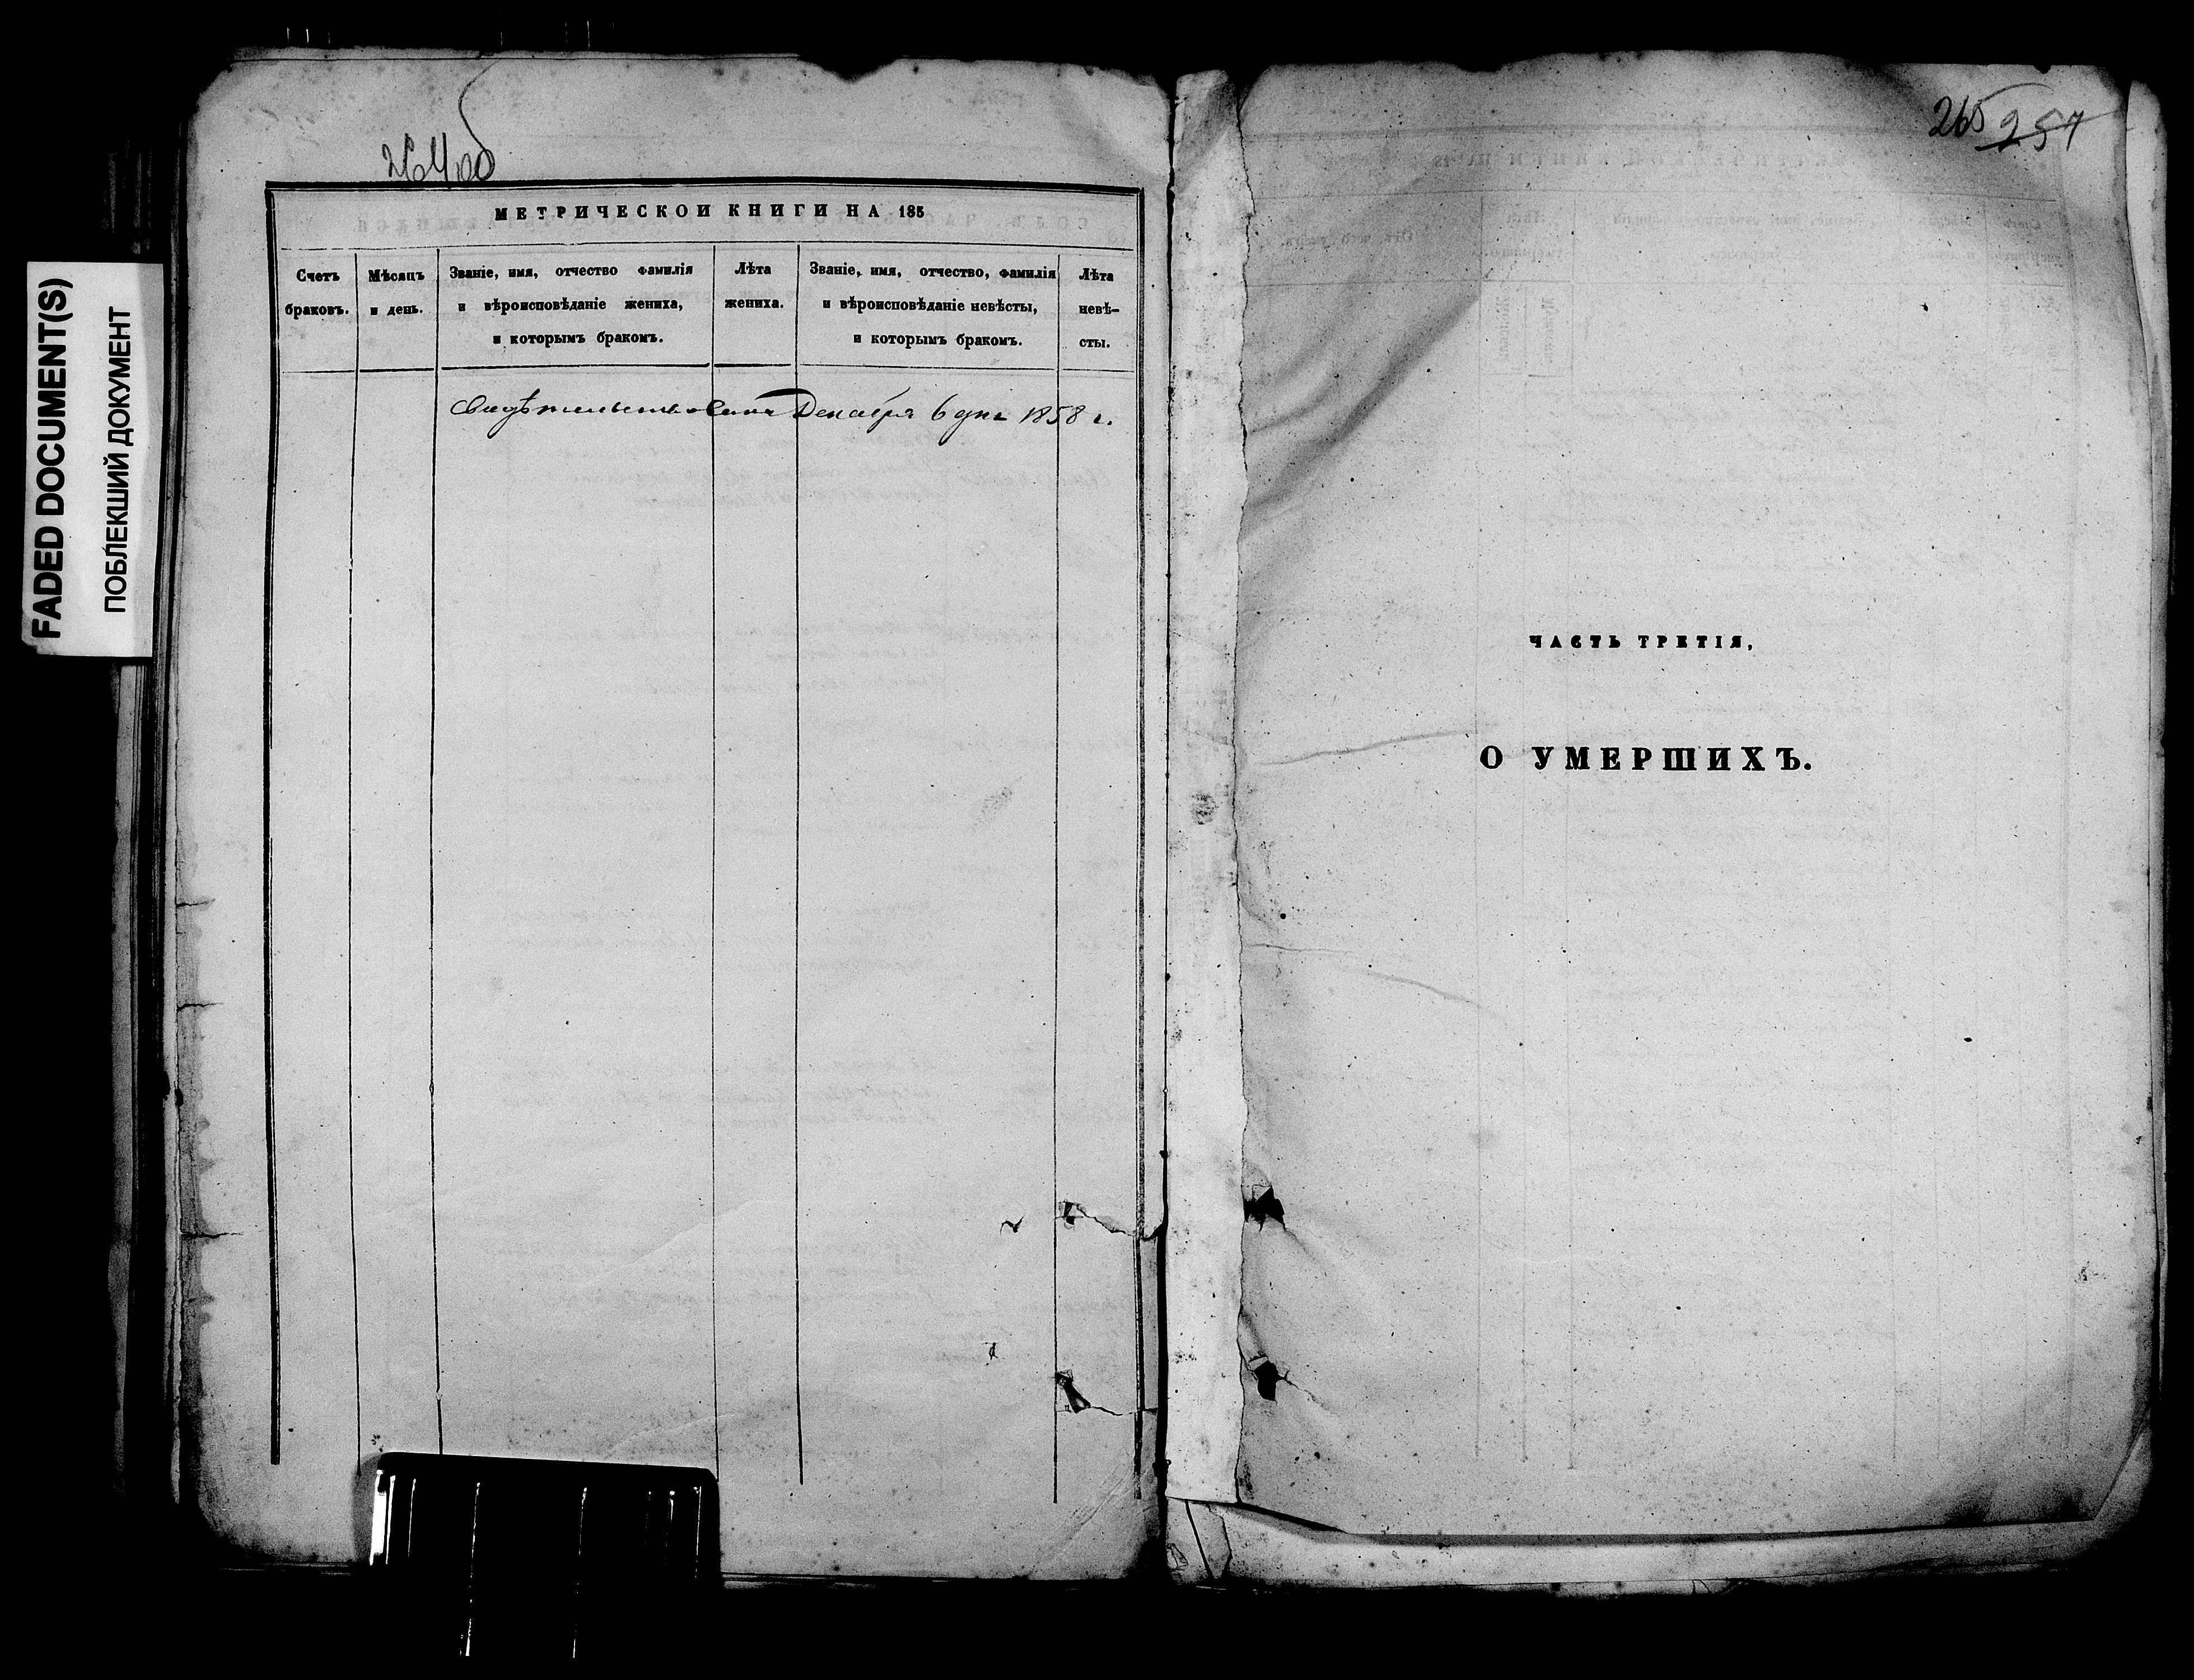 FADED DOCUMENT(S)
ПОБЛЕКШИЙ ДОКУМЕНТ
264об
МЕТРИЧЕСКОИ КНИГИ НА 185
Счетъ
браковъ.
Мѣсяцъ
и день.
Званіе, имя, отчество фамилія
и вѣроисповѣданіе жениха,
и которымъ бракомъ.
Лѣта
жениха.
Званіе, имя, отчество, фамилія
и вѣроисповѣданіе невѣсты,
и которымъ бракомъ.
Лѣта
невѣ-
сты.
Свидѣтельствована Декабря 6 дня 1858 г.
265 257
ЧАСТЬ ТРЕТІЯ,
О УМЕРШИХЪ.